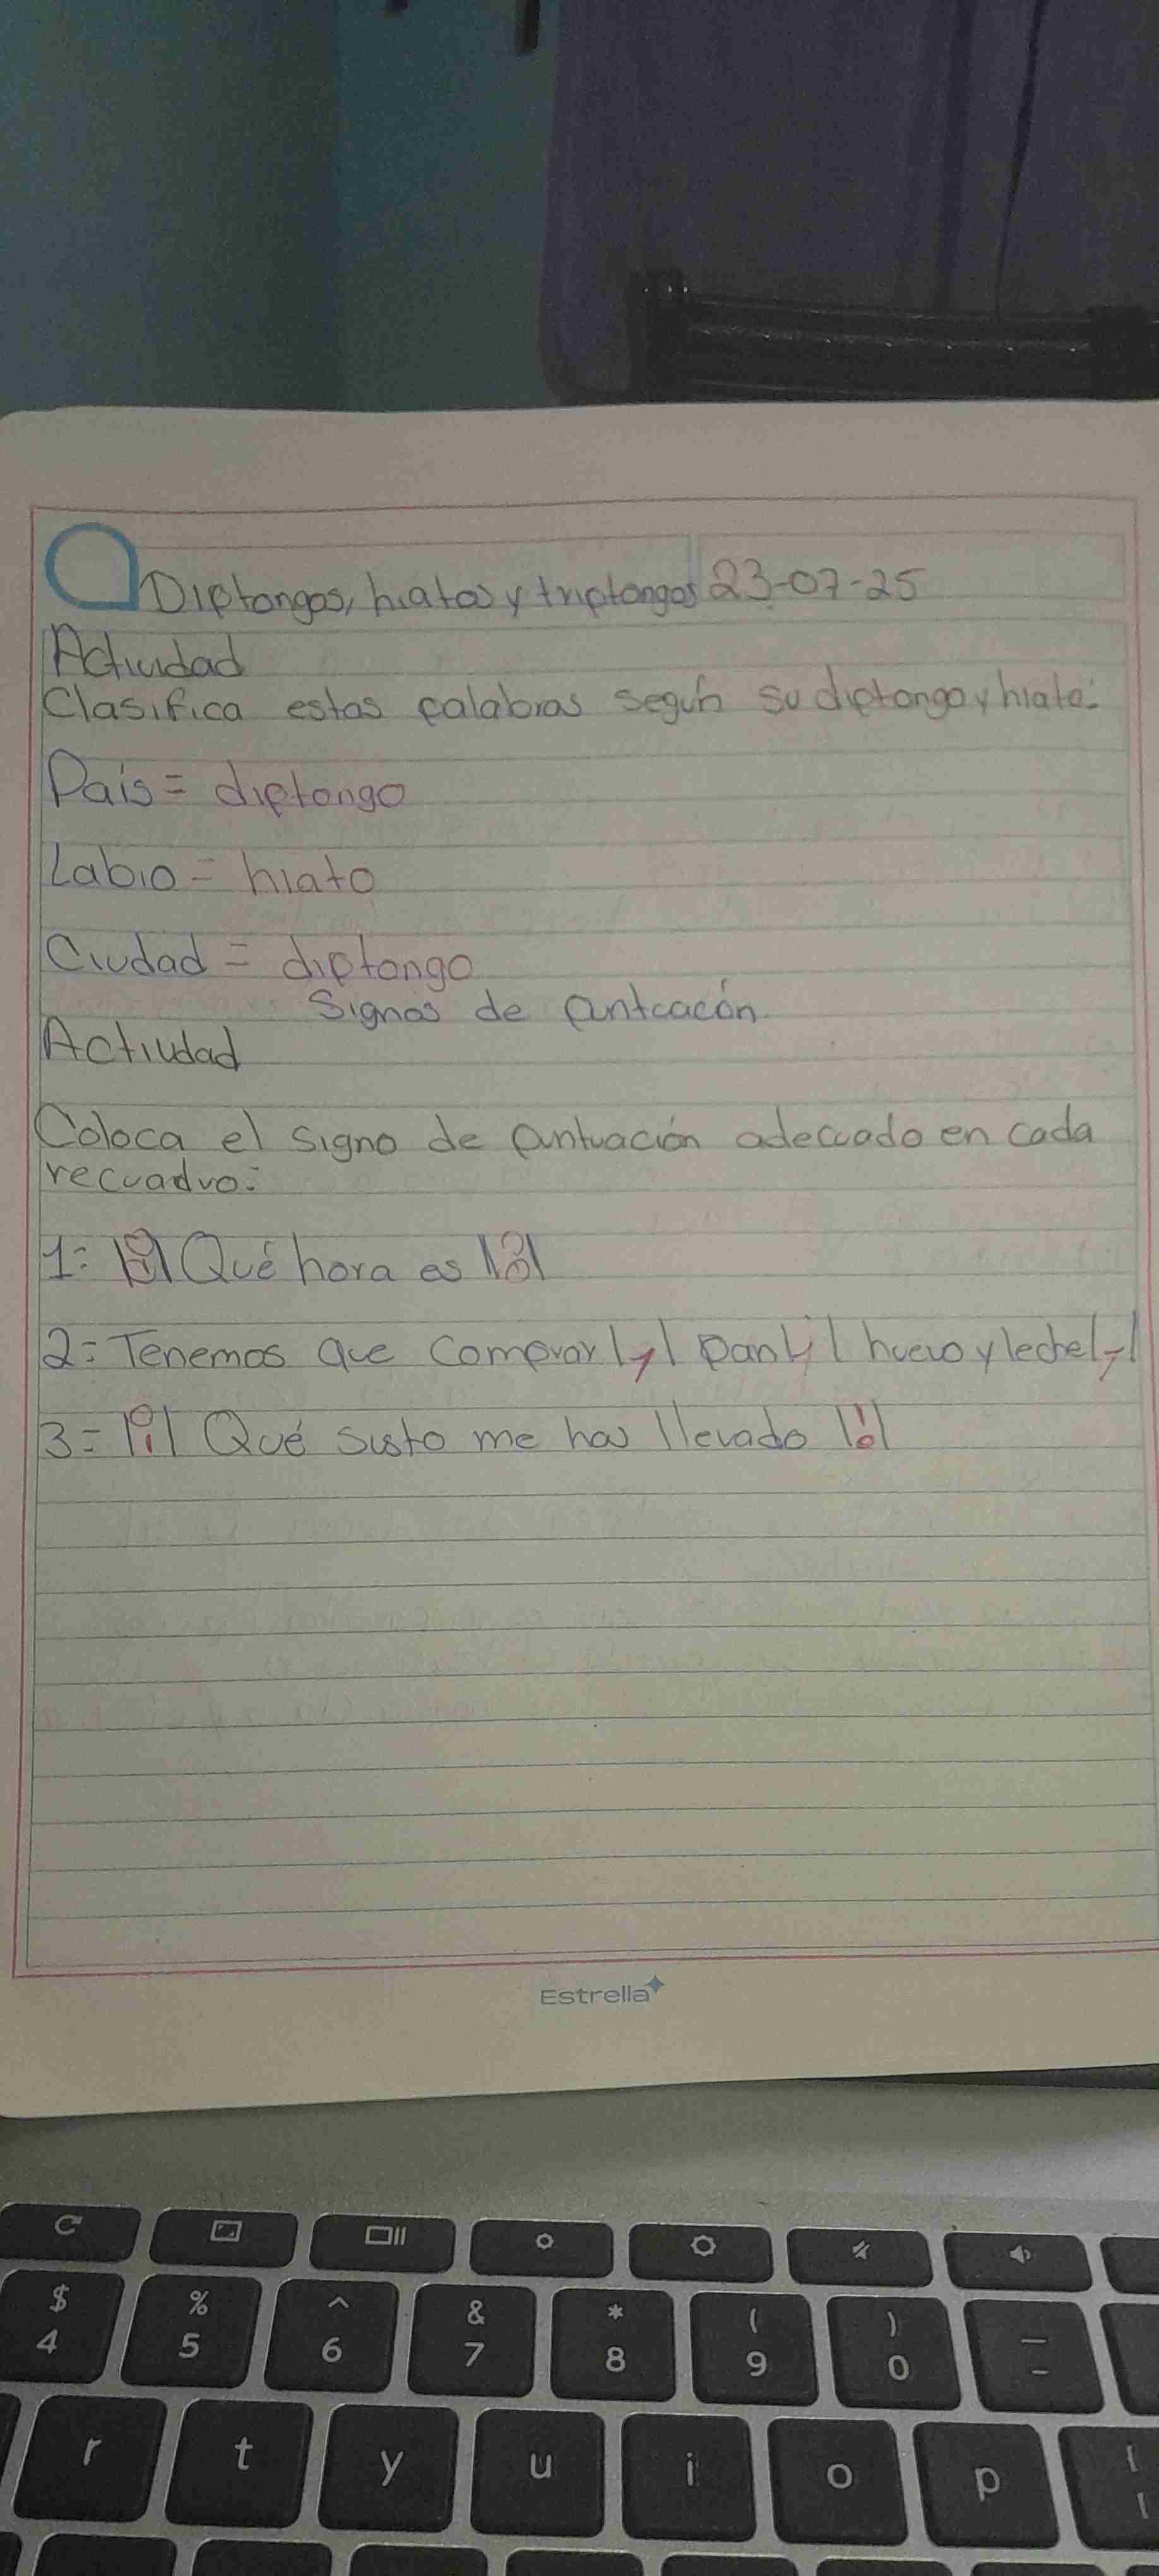 Diptongos, hiatos y triptongos 23-07-25
Actividad
Clasifica estas palabras según su diptongo y hiato:
País = diptongo
Labio = hiato
Ciudad = diptongo
Signos de puntcacón
Actividad
Coloca el signo de puntuación adecuado en cada
recuadro:
1: |¿| Qué hora es |?|
2: Tenemos que comprar |,| pan |,| huevo y leche |,|
3= |¡| Qué susto me has llevado |!|
Estrella
$ % ^ & * ( ) _
4 5 6 7 8 9 0 -
r t y u i o p { [